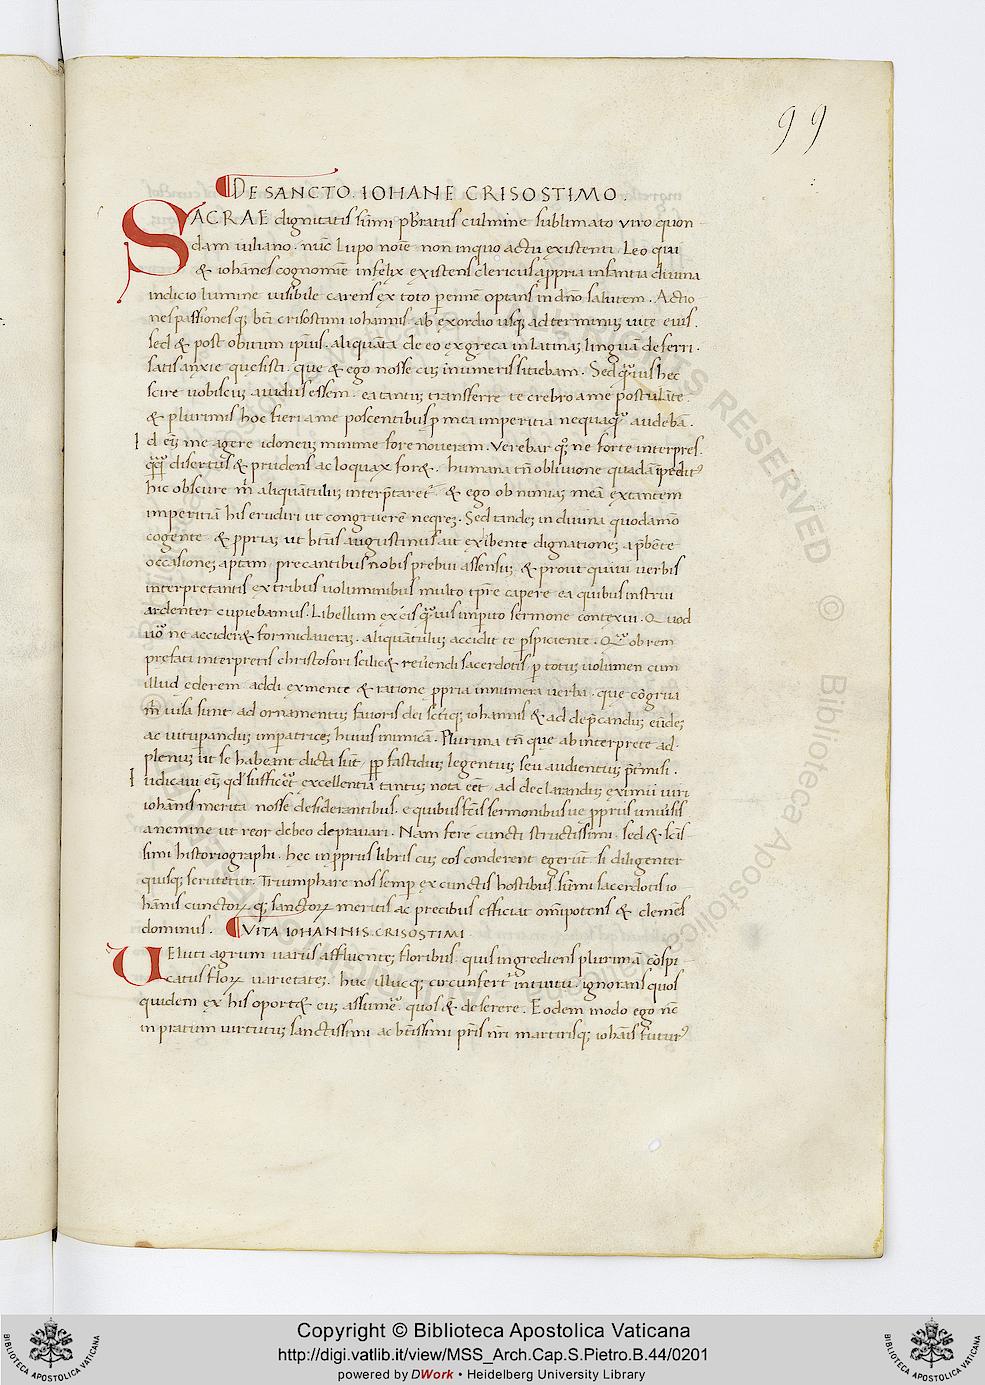 99
DE SANCTO. IOHANE CRISOSTIMO.
SACRAE dignitatis sūmi p̄bratus culmine sublimato viro quon-
dam iuliano. nūc lupo noīe non iniquo actu existenti Leo qui
& iohānes cognomīe infęlix existens clericus, a ppria infantia divina
indicio lumine visibile carens, ex toto pennē opians in dn̄o salutem. Actio-
nes passionesq; bt̄i crisostimi iohannis. ab exordio usq; ad terminū vite eius.
sed & post obitum ipīus. aliquāta de eo ex greca in latinaȝ linguā deferri.
satis anxie quesisti. que & ego nosse cuȝ inumeris sitiebam. Sed quȧuis hec
scire vobiscuȝ avidus essem. ea tantuȝ transferre te crebro a me postulāte.
& plurimis hoc fieri a me poscentibus p mea imperitia nequaqȝ audebā.
Id eīȝ me agere idoneuȝ minime fore noveram. Verebar qȝ ne forte interpres.
qqȝ disertus & prudens ac loquax for&. humana tn̄ oblivione quadā īpedit᷒
hic obscure m̄ aliquātuluȝ interp̄taret᷒. & ego ob nimiaȝ meā extantem
imperitiā his erudiri ut congruerē neqreȝ. Sed tandeȝ in divina quodāmō
cogente & ppriaȝ ut bt̄us augustinus ait exibente dignationeȝ a p̄bēte
occasioneȝ aptam, precantibus nobis prebui assensuȝ. & prout quivi verbis
interpretantis ex tribus voluminibus multo tp̄re capere ea quibus instrui
ardenter cupiebamus. Libellum ex eis quȧuis impito sermone contexui. Quod
uō ne accider& formidaveraȝ. aliquātuluȝ accidit te pspiciente. Quȧobrem
prefati interpretis christofori scilic& reuendi sacerdotis, p totuȝ volumen cum
illud ederem addi ex mente & ratione ppria innumera verba. que cōgrua
m̄ visa sunt ad ornamentuȝ favoris dei sc̄tiq; iohannis & ad dep̄canduȝ eūdeȝ
ac vitupanduȝ impatriceȝ huius inimicā. Plurima tn̄ que ab interprete ad
plenuȝ ut se habeant dicta sūt, pp fastidiuȝ legentiuȝ seu audientiuȝ p̄tmisi.
Iudicavi eīȝ qd̄ sufficȇt excellentiā tantuȝ nota eēt ad declaranduȝ eximii viri
iohānis merita nosse desiderantibus. e quibus fc̄is sermonibus ve pprius invisis
a nemine ut reor debeo depravari. Nam fere cuncti structissimi. sed & sc̄is-
simi historiographi. hec in pprius libris cuȝ eos conderent egerūt. si diligenter
quisq; scrutetur. Triumphare nos semp ex cunctis hostibus. sūmi sacerdotis io-
hānis cunctorꝝ qȝ sanctorꝝ meritis ac precibus efficiat omīpotens & clemēs
dominus. VITA IOHANNIS CRISOSTIMI
Veluti agrum variis affluenteȝ floribus. quis ingrediens plurimā cōspi-
catus florꝝ varietateȝ. huc illucqȝ circunfert᷒ intuitu. ignorans quos
quidem ex his oport& cuȝ assumȇ. quos & deserere. Eodem modo ego nc̄
in pratum virtutuȝ sanctissimi ac bt̄issimi pr̄is nr̄i martirisqȝ iohānis